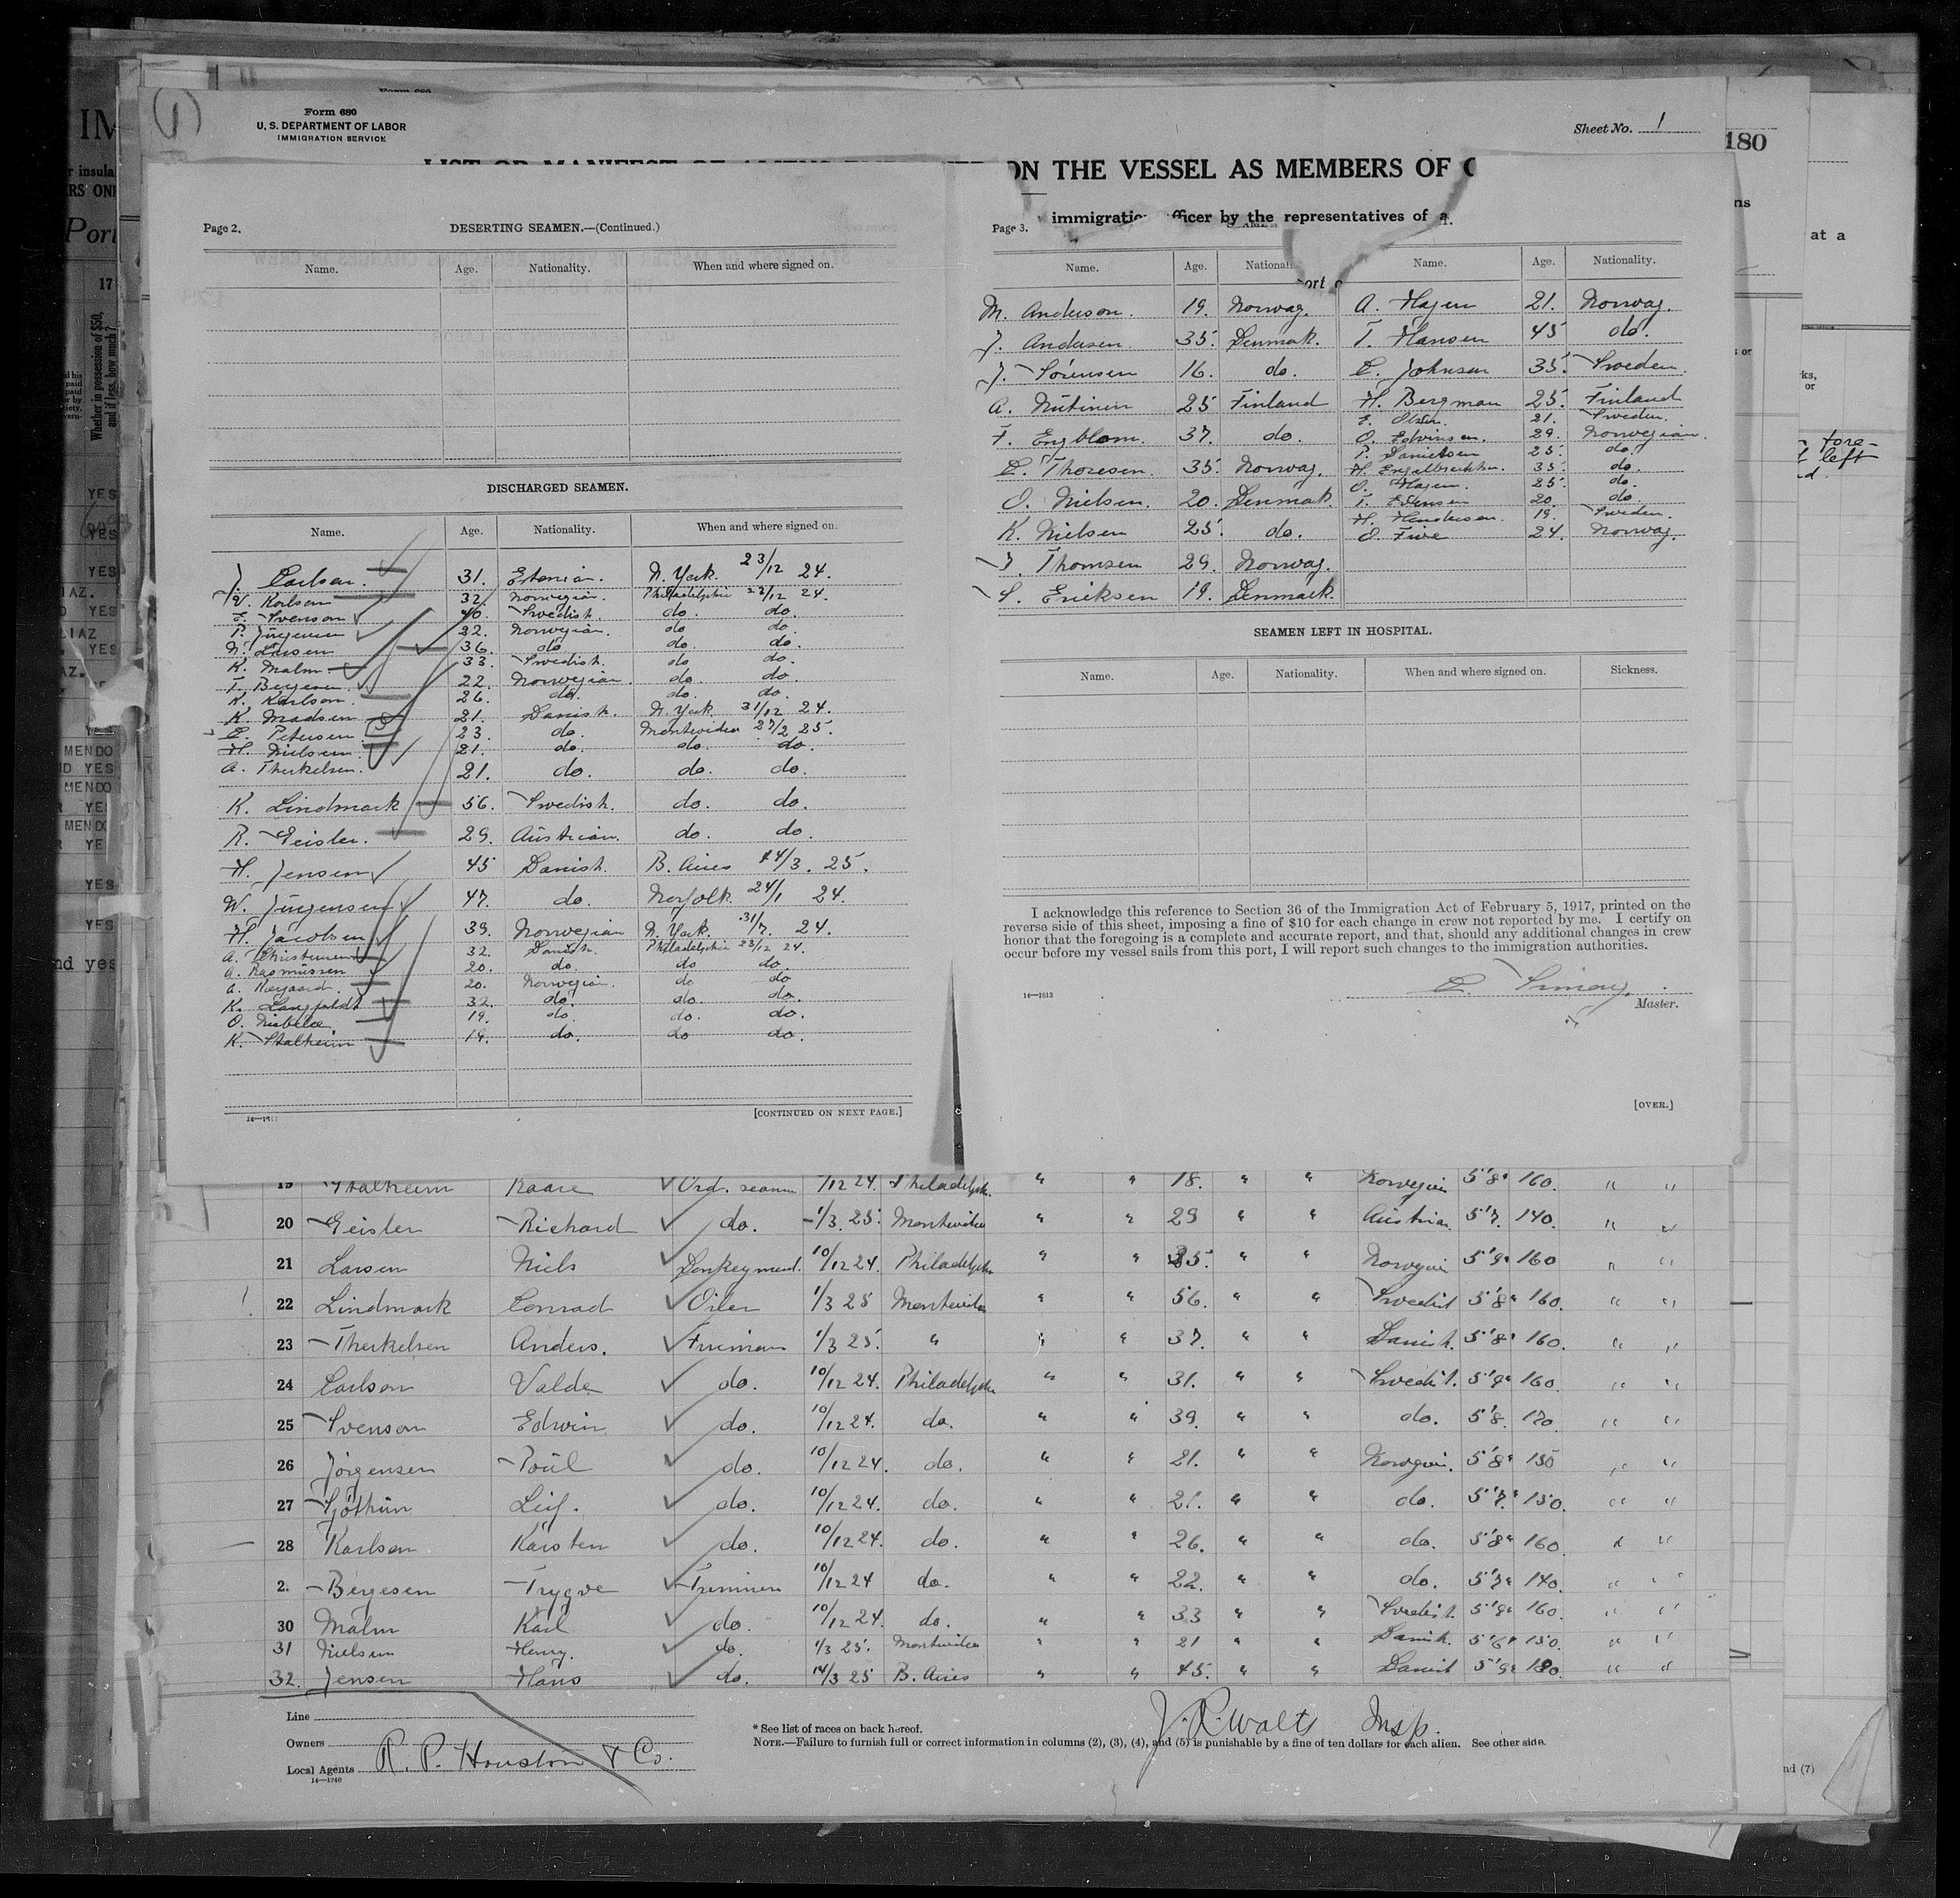 Form 680
U. S. DEPARTMENT OF LABOR
IMMIGRATION SERVICE
Sheet No. 1
180
ON THE VESSEL AS MEMBERS OF
immigration officer by the representatives of
at a
Page 2.
DESERTING SEAMEN.—(Continued.)
Name. Age. Nationality. When and where signed on.
DISCHARGED SEAMEN.
Name. Age. Nationality. When and where signed on.
J. Carlson. 31. Estonian. N. York. 23/12 24.
V. Karlson 32. Norwegian. Philadelphia 23/12 24.
E. Svenson 40. Swedish. do. do.
P. Jörgensen 22. Norwegian. do do
N. Larsen 36. do do. do.
K. Malm 33. Swedish. do do.
T. Bergesen 22. Norwegian. do. do
K. Karlson. 26. do. do. do.
K. Madsen 21. Danish. N. York. 31/12 24.
E. Petersen 23. do. Montevideo 27/2 25.
H. Nielsen 21. do. do. do.
A. Therkelsen. 21. do. do. do.
K. Lindmark 56. Swedish. do. do.
R. Geisler. 29. Austrian. do. do.
H. Jensen 45 Danish. B. Aires 14/3. 25.
W. Jürgensen 47. do. Norfolk. 24/1 24.
H. Jacobsen 39. Norwegian N. York. 31/7. 24.
A. Christensen 32. Danish. Philadelphia 23/12 24.
A. Rasmussen 20. do. do do.
A. 20. Norwegian. do do
K. Langfeldt 32. do. do. do.
O. 19. do. do. do.
K. Stalheim 19. do. do do.
14—1613
[CONTINUED ON NEXT PAGE.]
Page 3.
Name. Age. Nationality. Name. Age. Nationality.
M. Anderson. 19. Norway. A. Hagen 21. Norway.
J. Andersen. 35. Denmark. T. Hansen 45 do.
J. Sörensen 16. do. E. Johnsen 35. Sweden.
A. Nutinen 25 Finland H. Bergman 25. Finland
E. Olsen. 21. Sweden.
F. Engblom. 37. do. O. Edvinsen. 29. Norwegian.
P. Danielsen 25. do.
E. Thoresen. 35. Norway. H. Engelbrechtsen. 35. do.
O. Hagen. 25. do.
O. Nielsen. 20. Denmark T. Evensen 20. do.
H. Hendersen. 19. Sweden.
K. Nielsen 25. do. O. Five 24. Norway.
J. Thomsen 29. Norway.
S. Eriksen 19. Denmark.
SEAMEN LEFT IN HOSPITAL.
Name. Age. Nationality. When and where signed on. Sickness.
I acknowledge this reference to Section 36 of the Immigration Act of February 5, 1917, printed on the
reverse side of this sheet, imposing a fine of $10 for each change in crew not reported by me. I certify on
honor that the foregoing is a complete and accurate report, and that, should any additional changes in crew
occur before my vessel sails from this port, I will report such changes to the immigration authorities.
14—1613
Master.
[OVER.]
19 Stalheim Kaare Ord. seaman /12 24. Philadelph. " " 18. " " Norwegian 5'8" 160. " "
20 Geisler Richard do. 1/3 25. Montevideo " " 29 " " Austrian. 5'7. 140. " "
21 Larsen Niels Donkeyman. 10/12 24. Philadelphia " " 35. " " Norwegian 5'9" 160 " "
22 Lindmark Conrad Oiler 1/3 25 Montevideo " " 56. " " Swedish 5'8" 160. " "
23 Therkelsen Anders. Fireman 1/3 25. " " " 37. " " Danish. 5'8" 160. " "
24 Carlson Valde do. 10/12 24. Philadelphia " " 31. " " Swedish. 5'9" 160. " "
25 Svenson Edwin do. 10/12 24. do. " " 39. " " do. 5'8. 170. " "
26 Jörgensen Poul do. 10/12 24. do. " " 21. " " Norwegian. 5'8" 150 " "
27 Leif. do. 10/12 24. do. " " 21. " " do. 5'7" 150. " "
28 Karlson Karsten do. 10/12 24. do. " " 26. " " do. 5'8" 160. " "
2. Bergesen Trygve Trimmer 10/12 24 do. " " 22. " " do. 5'7" 140. " "
30 Malm Karl do. 10/12 24. do. " " 33 " " Swedish. 5'9" 160. " "
31 Nielsen Henry. do. 1/3 25. Montevideo " " 21 " " Danish. 5'6" 150. " "
32. Jensen Hans do. 14/3 25 B. Aires " " 45. " " Danish 5'9" 180. " "
Line
Owners
Local Agents R. P. Houston & Co.
14—1240
* See list of races on back hereof.
J. R. Walts Insp.
NOTE.—Failure to furnish full or correct information in columns (2), (3), (4), and (5) is punishable by a fine of ten dollars for each alien. See other side.